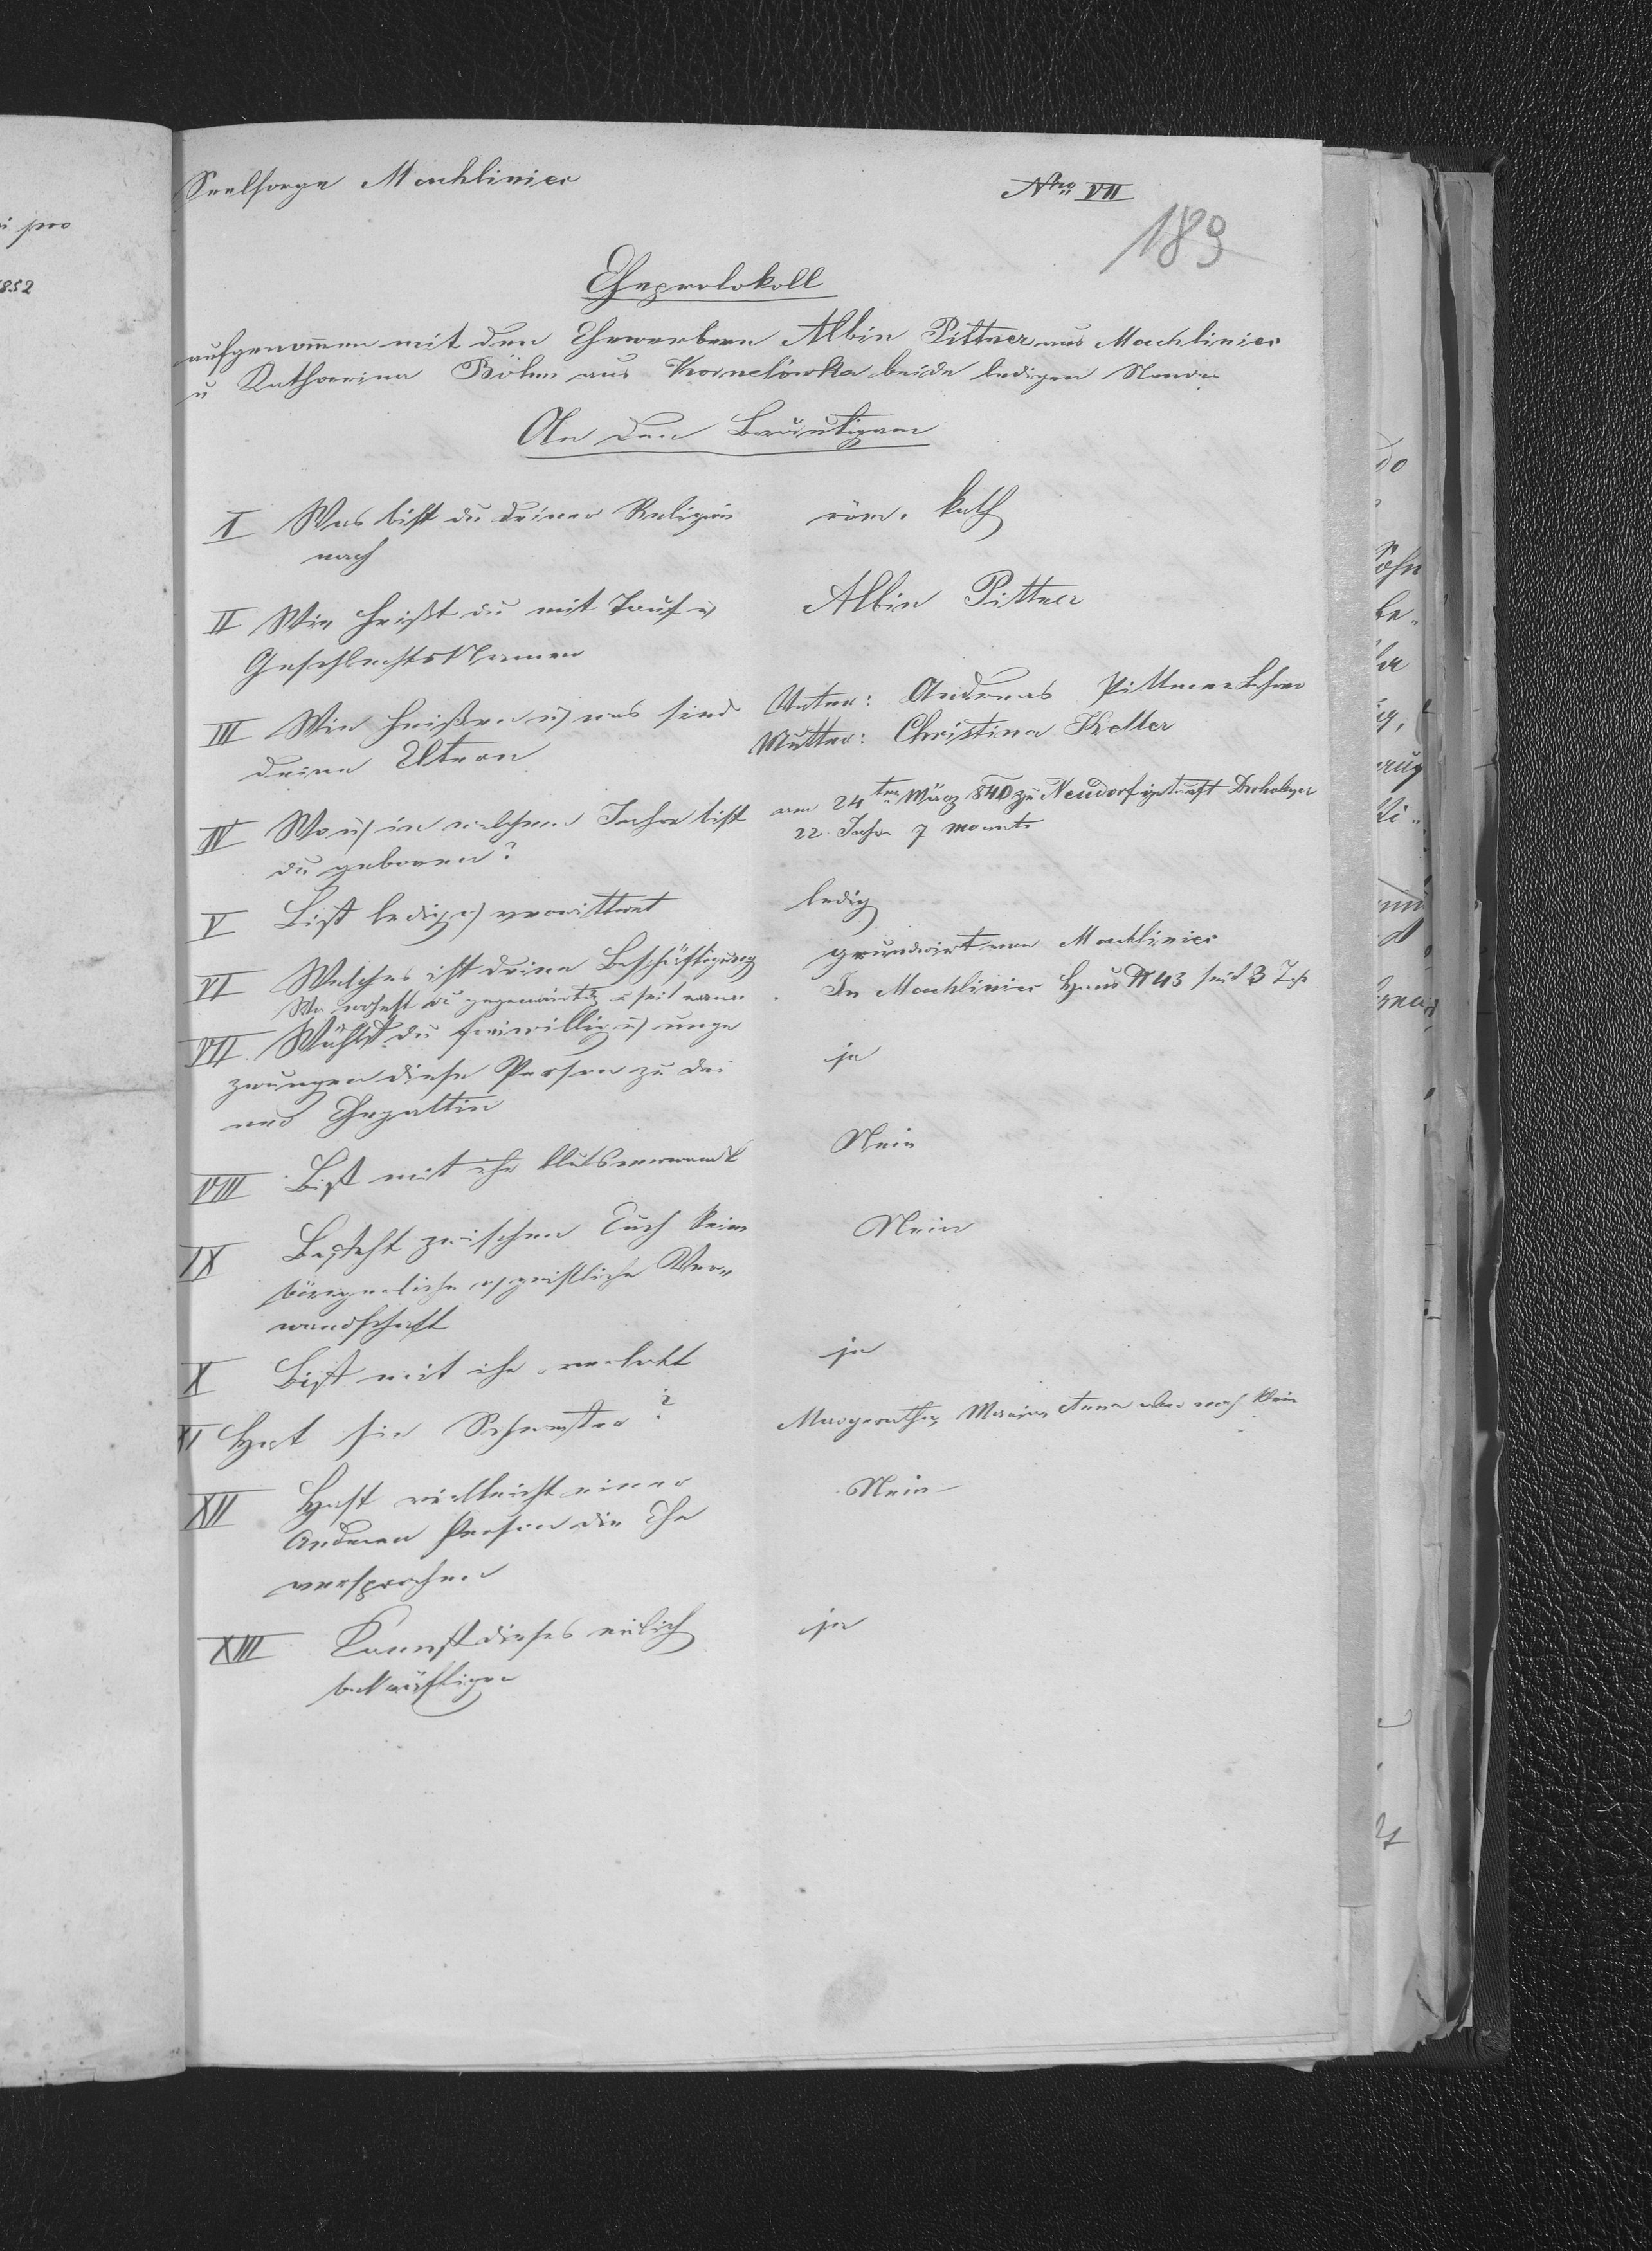 Seelsorge Machliniec
Nro VII
189
Eheprotokoll
aufgenommen mit den Ehewerbern Albin Pittner aus Machliniec
u Katharina Böhm aus Kornelówka beide ledigen Standes
An den Bräutigam
I Was bist du deiner Religion
nach
röm. kath
II Wie heißt du mit Tauf u
Geschlechtsnamen
Albin Pittner
III Wie heißen u was sind
deine Eltern
Vater: Andreas Pittner
Mutter: Christina Keller
IV Wo u in welchem Jahre bist
du geboren?
am 24ten März 840 zu Neudorf getauft Drohobycz
22 Jahr 7 Monate
V Bist ledig o verwittwet
ledig
VI Welches ist deine Beschäftigung
Wo wohnst du gegenwärtig u seit wann
grundwirt von Machliniec
In Machliniec Haus N 43 seit 3 Jah
VII Wählst du freiwillig u unge
zwungen diese Person zu dei
ner Ehegattin
ja
VIII Bist mit ihr blutsverwandt
Nein
IX Besteht zwischen Euch keine
bürgerliche o geistliche Ver„
wandschaft
Nein
X Bist mit ihr verlobt
ja
XI Hat sie Schwester?
Margaretha, Maria, Anna aber noch klein
XII Hast vielleicht einer
Anderen Person die Ehe
versprochen
Nein
XIII Kannst dieses eidlich
bekräftigen
ja
i pro
852
do
Sohn